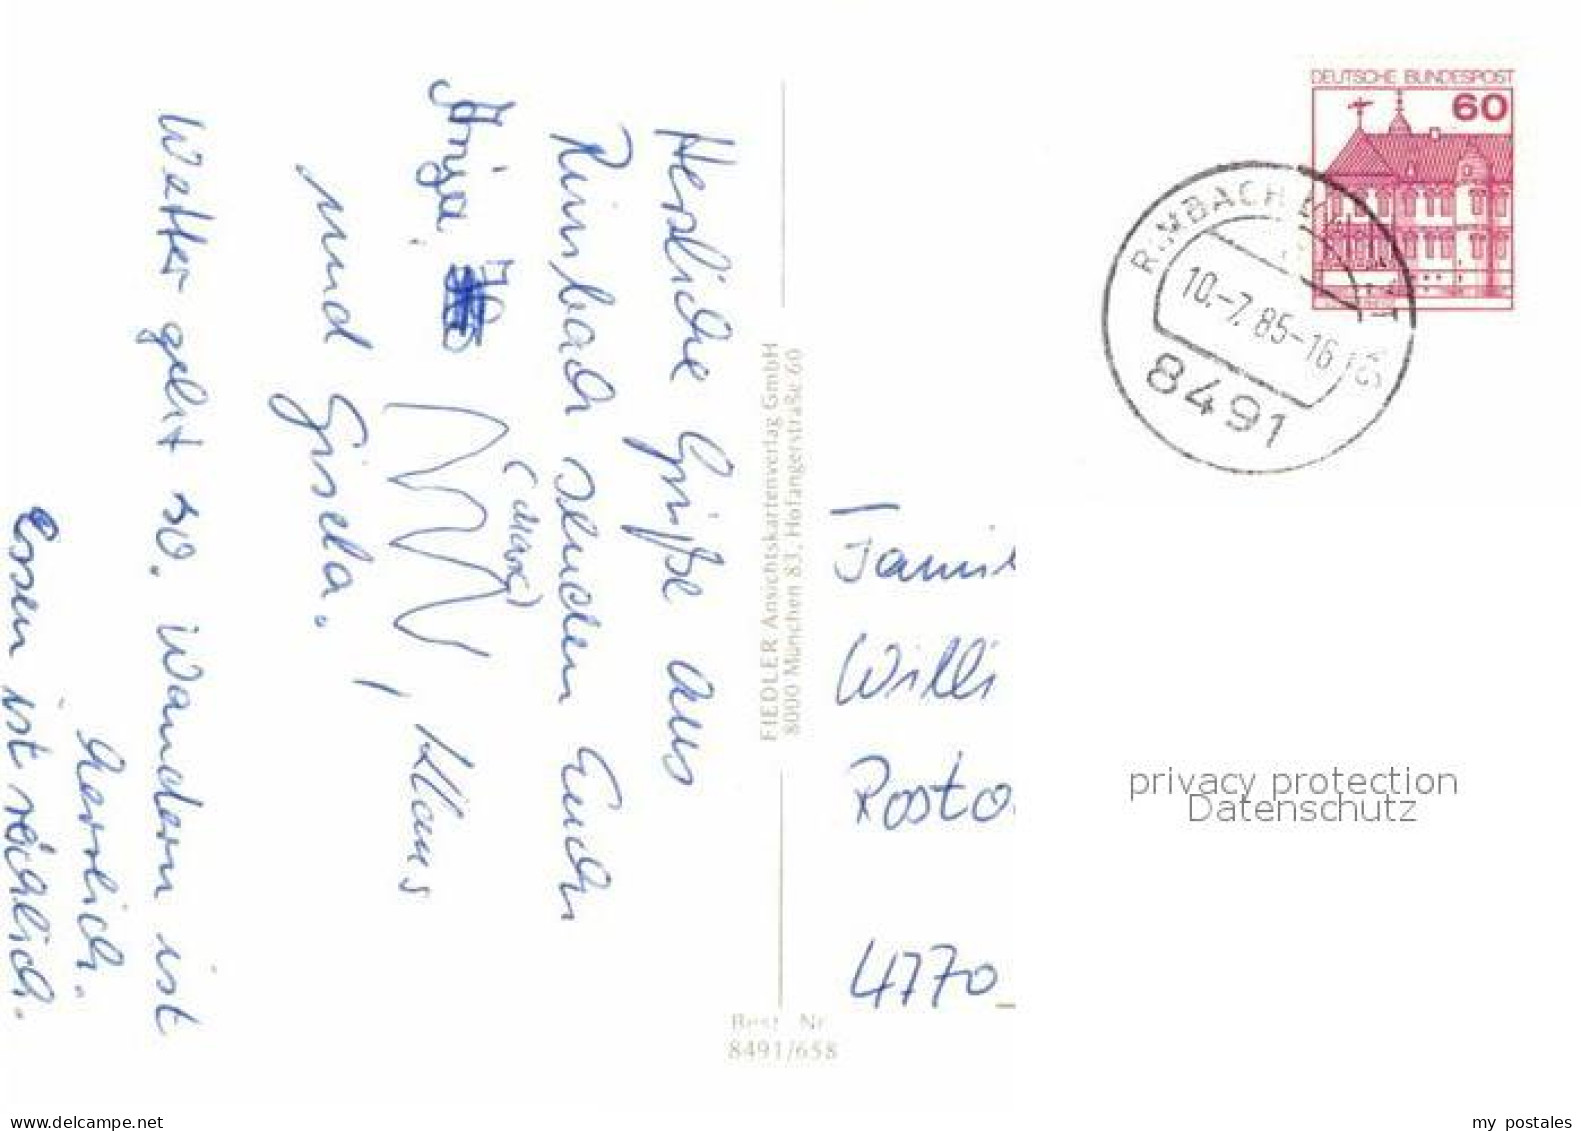 Herzliche Grüße aus
Rimbach senden Euch
Anja,
(Marc)
, Klaus
und Gisela.
Wetter geht so. Wandern ist
herrlich.
Essen ist reichlich.
FIEDLER Ansichtskartenverlag GmbH
8000 München 83, Hofangerstraße 60
Best. Nr.
8491/658
DEUTSCHE BUNDESPOST
60
RIMBACH
10.-7.85-16
8491
Willi
4770
privacy protection
Datenschutz
my postales